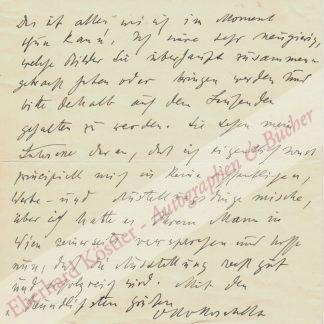 Das ist alles was ich im Moment
tun kann. Ich wäre sehr neugierig,
welche Bilder Sie überhaupt zusammen
gebracht haben oder bringen werden und
bitte deshalb auf dem Laufenden
gehalten zu werden. Sie sehen mein
Interesse daran, daß ich eigentlich sonst
principiell mich in keine
Werbe- und Ausstellungsdinge mische,
aber ich hatte es Ihrem Mann in
Wien seinerzeit versprochen und hoffe
nun, daß die Ausstellung recht gut
und erfolgreich wird. Mit den
freundlichsten Grüßen
Eberhard Köstler - Autographen & Bücher